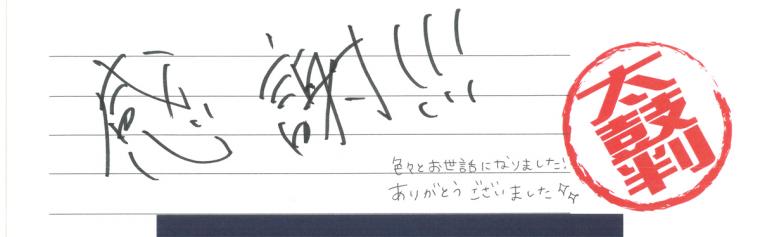 感謝!!!
色々とお世話になりました!
ありがとうございました
太鼓判